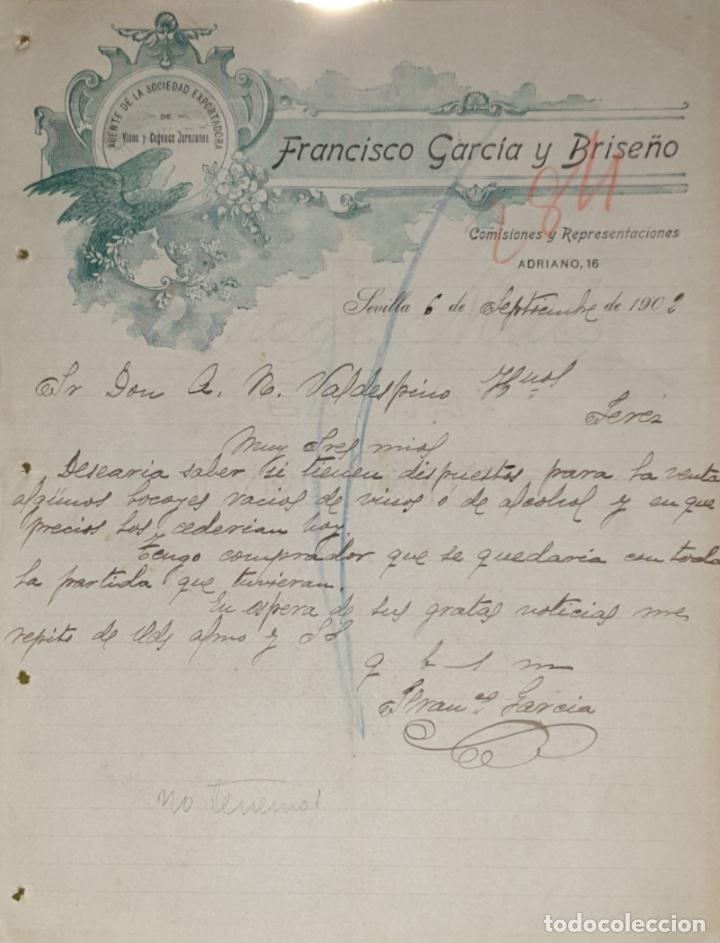 AGENTE DE LA SOCIEDAD EXPORTADORA
DE
Vinos y Cognacs Jerezanos
Francisco García y Briseño
284
Comisiones y Representaciones
ADRIANO, 16
Sevilla 6 de Septiembre de 1902
Sr Don A. R. Valdespino Hnos
Jeréz
Muy Sres mios
Desearia saber si tienen dispuestos para la venta
algunos bocoyes vacios de vinos ó de alcohol y en que
precios los cederian hoy.
Tengo comprador que se quedaria con toda
la partida que tuvieran.
En espera de sus gratas noticias me
repito de Uds afmo y SS
q b s m
Franco García
no tenemos
todocoleccion
todocoleccion.net